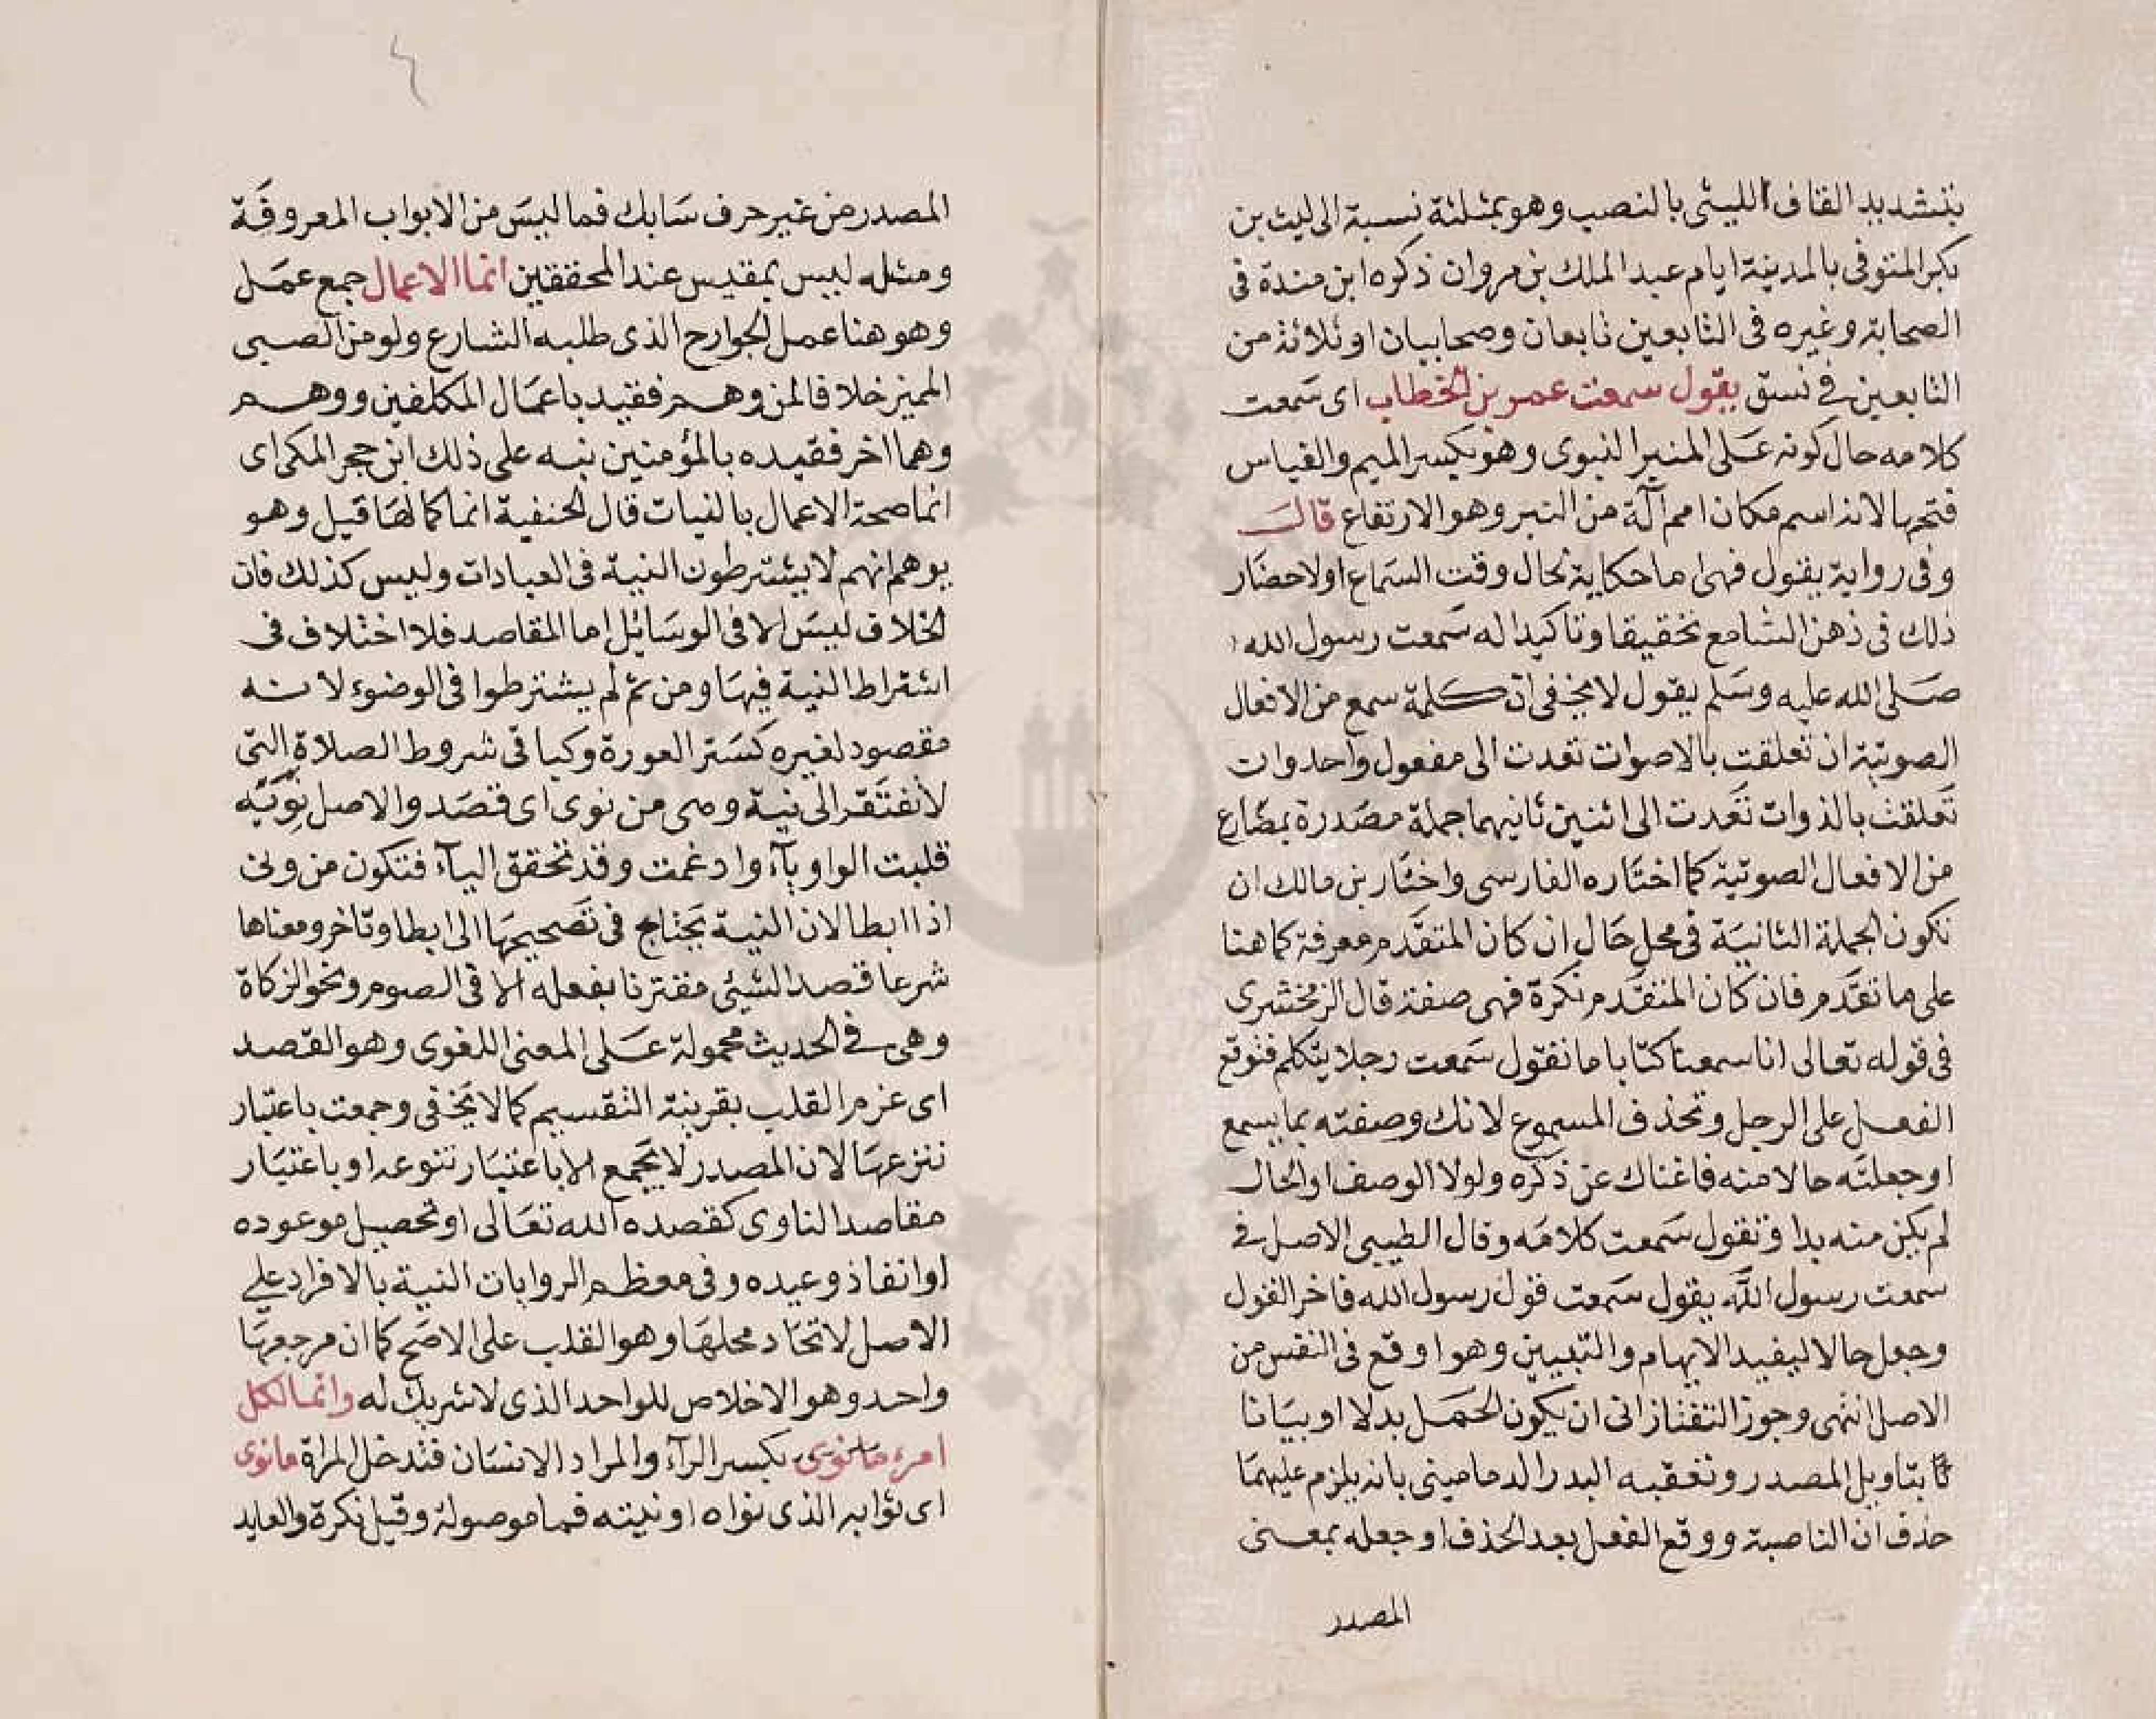 بتشديد القاف الليثى بالنصب وهو بمثلثة نسبة الى ليث بن
بكر المتوفى بالمدينة ايام عبد الملك بن مروان ذكره ابن مندة فى
الصحابة وغيره فى التابعين تابعان وصحابيان او ثلاثة من
التابعين فى نسق يقول سمعت عمر بن الخطاب اى سَمعت
كلامه حال كونه عَلى المنبر النبوى وهو بكسر الميم والقياس
فتحها لانه اسم مكان امم آلة من النبر وهو الارتفاع قال
وفى رواية يقول فهى اما حكاية لحال وقت السَماع او لاحضَار
ذلك فى ذهن السَامع تحقيقا وتاكيدا له سَمعت رسول الله
صَلى الله عليه وسَلم يقول لا يخفى ان كلمة سمع من الافعال
الصوتية ان تعلقت بالاصوات تعدت الى مفعول واحد وان
تَعلقت بالذوات تعَدت الى اثنين ثانيهما جملة مصَدرة بمضَارع
من الافعال الصوتية كما اختَاره الفارسى واختَار بن مالك ان
تكون الجملة الثانيَة فى محل حَال ان كان المتقَدم معرفة كما هنا
على ما تقَدم فان كان المتقَدم نكرة فهى صفة قال الزمخشرى
فى قوله تعالى انا سمعنا كتابا ما نقول سَمعت رجلا يتكلم فتوقع
الفعل على الرجل وتحذف المسموع لانك وصفته بما يسمع
او جعلته حالا منه فاغناك عن ذكره ولولا الوصف او الحال
لم يكن منه بدا وتقول سَمعت كلامَه وقال الطيبى الاصل فى
سمعت رسول الله يقول سَمعت قول رسول الله فاخر القول
وجعل حالا ليفيد الابهام والتبيين وهو اوقع فى النفس من
الاصل انتهى وجوز التفتازانى ان يكون الحَمل بدلا او بيَانا
بتاويل المصدر وتعقبه البدر الدمامينى بانه يلزم عليهمَا
حذف ان الناصبة ووقع الفعل بعد الحذف او جعله بمعنى
المصدر
المصدر من غير حرف سَابك فما ليسَ من الابواب المعروفَة
ومثله ليس بمقيس عند المحققين انما الاعمال جمع عمَل
وهو هنا عمل الجوارح الذى طلبه الشارع ولو من الصبى
المميز خلافا لمن وهم فقيد باعمَال المكلفين ووهم
وهما اخر فقيده بالمؤمنين نبه على ذلك ابن حجر المكى اى
انما صحة الاعمال بالنيات قال الحنفية انما كمالهَا قيل وهو
يوهم انهم لا يشترطون النية فى العبادات وليس كذلك فان
الخلاف ليسَ الا فى الوسَائل اما المقاصد فلا اختلاف فى
اشتراط النية فيهَا ومن ثم لم يشترطوا فى الوضوء لانه
مقصود لغيره كسَتر العورة وكباقى شروط الصلاة التى
لا تفتَقر الى نية وهى من نوى اى قصَد والاصل نِويَة
قلبت الواو يآء وادغمت وقد تخفق اليآء فتكون من ونى
اذا ابطا لان النية يَحتاج فى تَصحيحهَا الى ابطا وتاخر ومعناها
شرعا قصد الشىء مقترنا بفعله الا فى الصوم ونحو الزكاة
وهى فى الحديث محمولة عَلى المعنى اللغوى وهو القصد
اى عزم القلب بقرينة التقسيم كما لا يَخفى وجمعت باعتبار
تنزعهَا لان المصدر لا يَجمع الا باعتبَار تنوعه او باعتبَار
مقاصد الناوى كقصده الله تعَالى او تحصيل موعوده
او انفاذ وعيده وفى معظم الروايات النية بالافراد على
الاصل لاتحَاد محلهَا وهو القلب على الاصَح كما ان مرجعهَا
واحد وهو الاخلاص للواحد الذى لا شريك له وانما لكل
امرء ما نوى بكسر الرآء والمراد الانسَان فتدخل المراة ما نوى
اى ثوابه الذى نواه او نيته فما موصولة وقيل نكرة والعايد